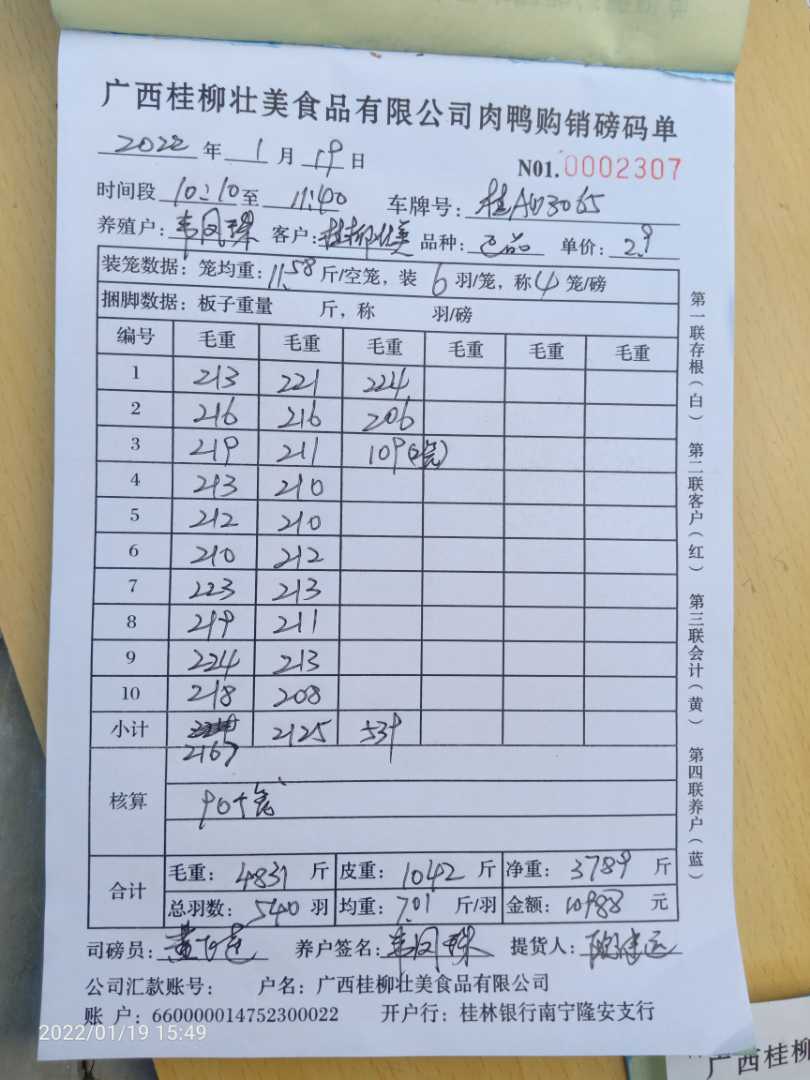 广西桂柳壮美食品有限公司肉鸭购销磅码单
2022年1月19日 N01.0002307
时间段10:10至11:40 车牌号:桂AU3065
养殖户:韦凤珠 客户:桂柳壮美 品种: 单价:2.9
装笼数据:笼均重:11.58斤/空笼,装6羽/笼,称4笼/磅
捆脚数据:板子重量 斤,称 羽/磅
编号 毛重 毛重 毛重 毛重 毛重 毛重
1 213 221 224
2 216 216 206
3 219 211 109(2笼)
4 213 210
5 212 210
6 210 212
7 223 213
8 219 211
9 224 213
10 218 208
小计 2167 2125 539
核算 90个笼
合计 毛重:4831斤 皮重:1042斤 净重:3789斤
总羽数:540羽 均重:7.01斤/羽 金额:10988元
司磅员: 养户签名:韦凤珠 提货人:
公司汇款账号: 户名:广西桂柳壮美食品有限公司
账 户:660000014752300022 开户行:桂林银行南宁隆安支行
第一联存根(白) 第二联客户(红) 第三联会计(黄) 第四联养户(蓝)
2022/01/19 15:49
广西桂柳